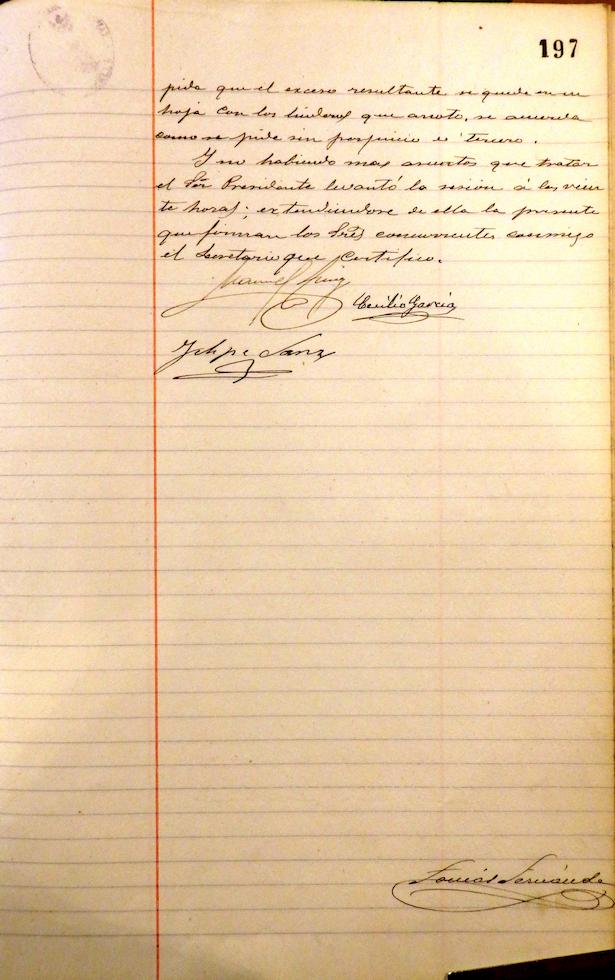 197
pida que el exceso resultante se quede en su
hoja con los linderos que anoto, se acuerda
como se pide sin perjuicio de tercero.
Y no habiendo mas asuntos que tratar
el Sor Presidante levantó la sesion á las vein
te horas; extendiendose de ella la presente
que forman los Sres concurrentes conmigo
el Secretario que certifico.
Manuel
Cecilio Garcia
Felipe Sanz
Fernández